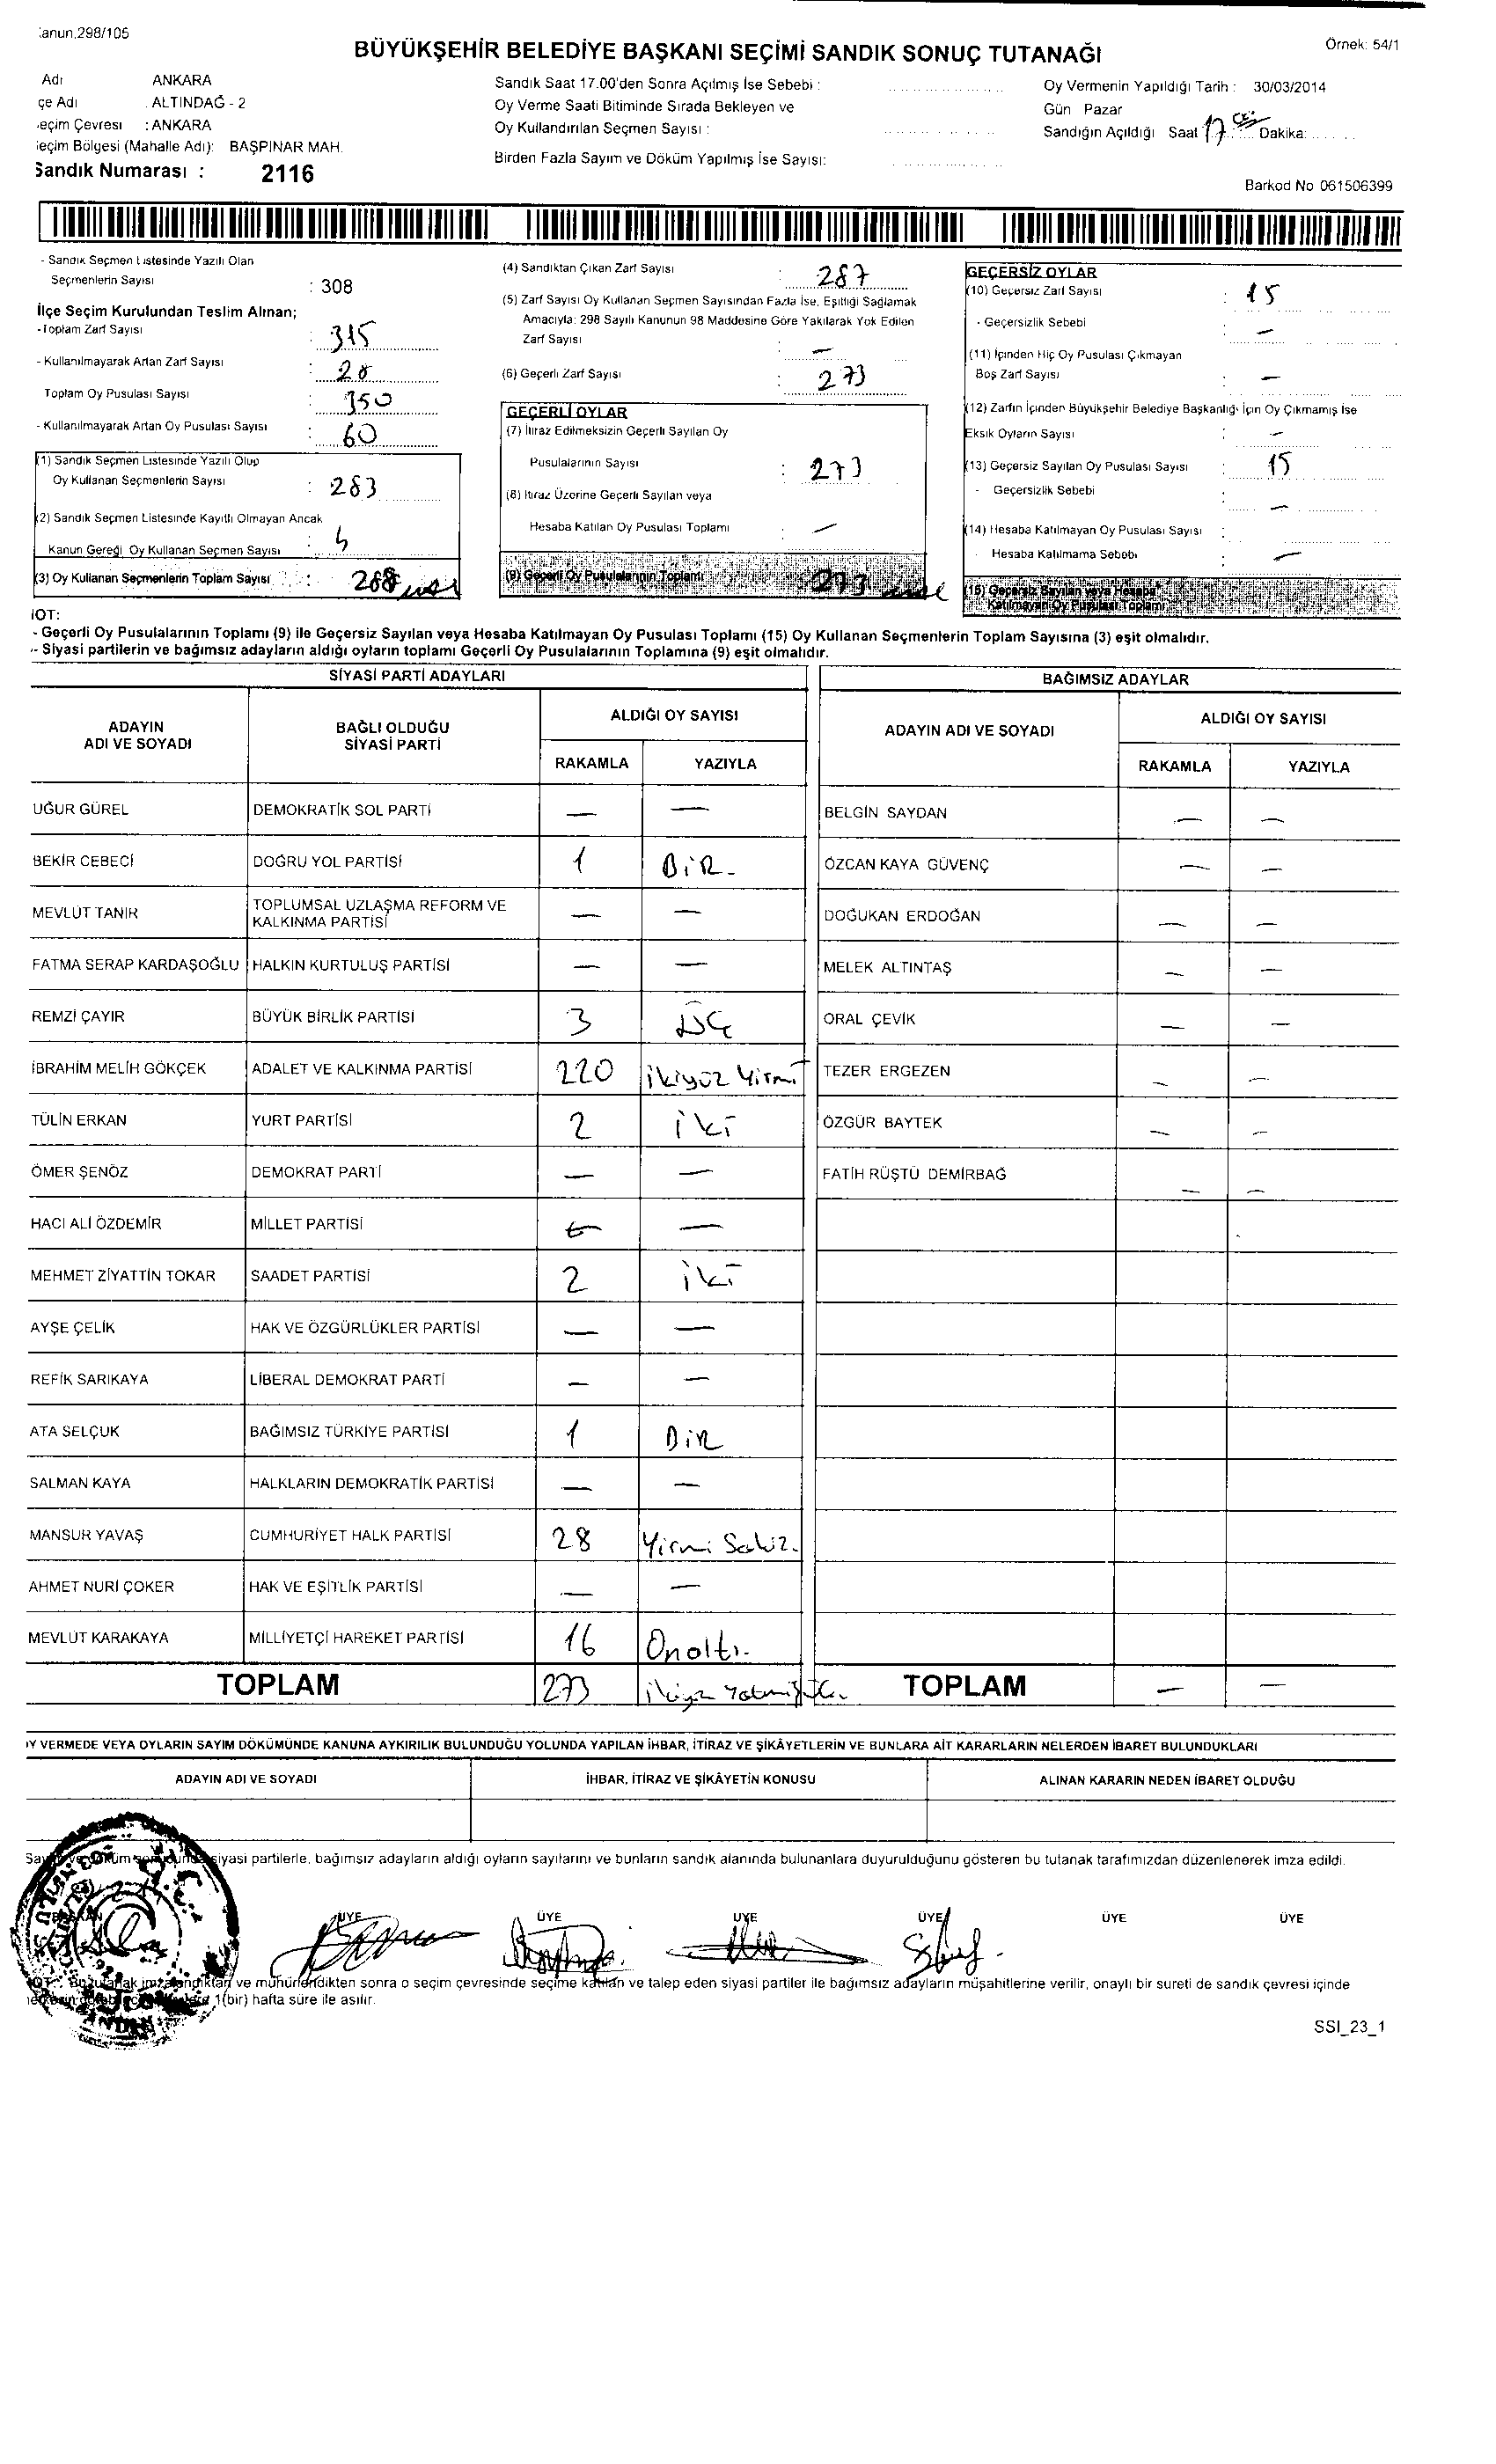 anun.298/105
BÜYÜKŞEHİR BELEDİYE BAŞKANI SEÇİMİ SANDIK SONUÇ TUTANAĞI
Örnek: 54/1
Adı ANKARA
çe Adı . ALTINDAĞ - 2
eçim Çevresi : ANKARA
eçim Bölgesi (Mahalle Adı): BAŞPINAR MAH.
Sandık Numarası : 2116
Sandık Saat 17.00'den Sonra Açılmış İse Sebebi :
Oy Verme Saati Bitiminde Sırada Bekleyen ve
Oy Kullandırılan Seçmen Sayısı :
Birden Fazla Sayım ve Döküm Yapılmış İse Sayısı:
Oy Vermenin Yapıldığı Tarih : 30/03/2014
Gün Pazar
Sandığın Açıldığı Saat 17 Dakika:
Barkod No 061506399
- Sandık Seçmen Listesinde Yazılı Olan
Seçmenlerin Sayısı : 308
İlçe Seçim Kurulundan Teslim Alınan;
-Toplam Zarf Sayısı : 315
- Kullanılmayarak Artan Zarf Sayısı : 28
Toplam Oy Pusulası Sayısı : 350
- Kullanılmayarak Artan Oy Pusulası Sayısı : 60
(1) Sandık Seçmen Listesinde Yazılı Olup
Oy Kullanan Seçmenlerin Sayısı : 283
(2) Sandık Seçmen Listesinde Kayıtlı Olmayan Ancak
Kanun Gereği Oy Kullanan Seçmen Sayısı :
(3) Oy Kullanan Seçmenlerin Toplam Sayısı : 288
(4) Sandıktan Çıkan Zarf Sayısı : 287
(5) Zarf Sayısı Oy Kullanan Seçmen Sayısından Fazla İse, Eşitliği Sağlamak
Amacıyla: 298 Sayılı Kanunun 98 Maddesine Göre Yakılarak Yok Edilen
Zarf Sayısı : —
(6) Geçerli Zarf Sayısı : 273
GEÇERLİ OYLAR
(7) İtiraz Edilmeksizin Geçerli Sayılan Oy
Pusulalarının Sayısı : 273
(8) İtiraz Üzerine Geçerli Sayılan veya
Hesaba Katılan Oy Pusulası Toplamı : —
(9) Geçerli Oy Pusulalarının Toplamı 273
GEÇERSİZ OYLAR
(10) Geçersiz Zarf Sayısı : 15
- Geçersizlik Sebebi : —
(11) İçinden Hiç Oy Pusulası Çıkmayan
Boş Zarf Sayısı : —
(12) Zarfın İçinden Büyükşehir Belediye Başkanlığı İçin Oy Çıkmamış İse
Eksik Oyların Sayısı : —
(13) Geçersiz Sayılan Oy Pusulası Sayısı : 15
- Geçersizlik Sebebi : —
(14) Hesaba Katılmayan Oy Pusulası Sayısı :
Hesaba Katılmama Sebebi : —
(15) Geçersiz Sayılan veya Hesaba
Katılmayan Oy Pusulası Toplamı
NOT:
- Geçerli Oy Pusulalarının Toplamı (9) ile Geçersiz Sayılan veya Hesaba Katılmayan Oy Pusulası Toplamı (15) Oy Kullanan Seçmenlerin Toplam Sayısına (3) eşit olmalıdır.
- Siyasi partilerin ve bağımsız adayların aldığı oyların toplamı Geçerli Oy Pusulalarının Toplamına (9) eşit olmalıdır.
SİYASİ PARTİ ADAYLARI
ADAYIN ADI VE SOYADI BAĞLI OLDUĞU SİYASİ PARTİ ALDIĞI OY SAYISI
RAKAMLA YAZIYLA
UĞUR GÜREL DEMOKRATİK SOL PARTİ — —
BEKİR CEBECİ DOĞRU YOL PARTİSİ 1 BİR-
MEVLÜT TANIR TOPLUMSAL UZLAŞMA REFORM VE KALKINMA PARTİSİ — —
FATMA SERAP KARDAŞOĞLU HALKIN KURTULUŞ PARTİSİ — —
REMZİ ÇAYIR BÜYÜK BİRLİK PARTİSİ 3 ÜÇ
İBRAHİM MELİH GÖKÇEK ADALET VE KALKINMA PARTİSİ 220 ikiyüz Yirmi
TÜLİN ERKAN YURT PARTİSİ 2 iki
ÖMER ŞENÖZ DEMOKRAT PARTİ — —
HACI ALİ ÖZDEMİR MİLLET PARTİSİ — —
MEHMET ZİYATTİN TOKAR SAADET PARTİSİ 2 iki
AYŞE ÇELİK HAK VE ÖZGÜRLÜKLER PARTİSİ — —
REFİK SARIKAYA LİBERAL DEMOKRAT PARTİ — —
ATA SELÇUK BAĞIMSIZ TÜRKİYE PARTİSİ 1 BİR
SALMAN KAYA HALKLARIN DEMOKRATİK PARTİSİ — —
MANSUR YAVAŞ CUMHURİYET HALK PARTİSİ 28 Yirmi Sekiz.
AHMET NURİ ÇOKER HAK VE EŞİTLİK PARTİSİ — —
MEVLÜT KARAKAYA MİLLİYETÇİ HAREKET PARTİSİ 16 Onaltı-
TOPLAM 273
BAĞIMSIZ ADAYLAR
ADAYIN ADI VE SOYADI ALDIĞI OY SAYISI
RAKAMLA YAZIYLA
BELGİN SAYDAN — —
ÖZCAN KAYA GÜVENÇ — —
DOĞUKAN ERDOĞAN — —
MELEK ALTINTAŞ — —
ORAL ÇEVİK — —
TEZER ERGEZEN — —
ÖZGÜR BAYTEK — —
FATİH RÜŞTÜ DEMİRBAĞ — —
TOPLAM — —
OY VERMEDE VEYA OYLARIN SAYIM DÖKÜMÜNDE KANUNA AYKIRILIK BULUNDUĞU YOLUNDA YAPILAN İHBAR, İTİRAZ VE ŞİKÂYETLERİN VE BUNLARA AİT KARARLARIN NELERDEN İBARET BULUNDUKLARI
ADAYIN ADI VE SOYADI İHBAR, İTİRAZ VE ŞİKÂYETİN KONUSU ALINAN KARARIN NEDEN İBARET OLDUĞU
siyasi partilerle, bağımsız adayların aldığı oyların sayılarını ve bunların sandık alanında bulunanlara duyurulduğunu gösteren bu tutanak tarafımızdan düzenlenerek imza edildi.
ÜYE ÜYE ÜYE ÜYE ÜYE ÜYE
ve mühürlendikten sonra o seçim çevresinde seçime katılan ve talep eden siyasi partiler ile bağımsız adayların müşahitlerine verilir, onaylı bir sureti de sandık çevresi içinde
1(bir) hafta süre ile asılır.
SSI_23_1